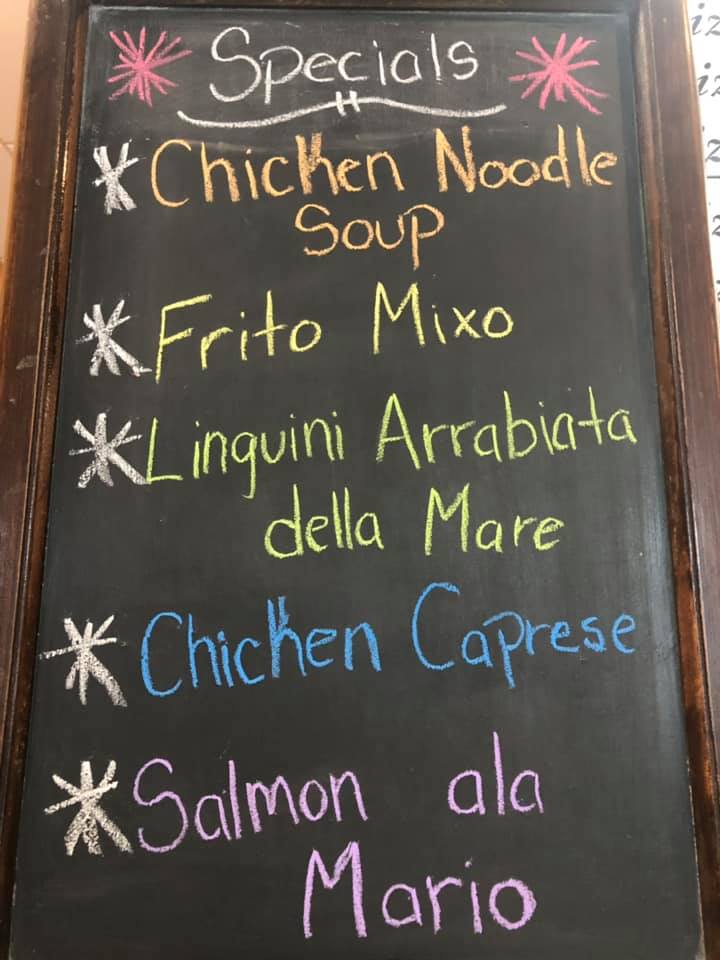 Specials
Chicken Noodle
Soup
Frito Mixo
Linguini Arrabiata
della Mare
Chicken Caprese
Salmon ala
Mario